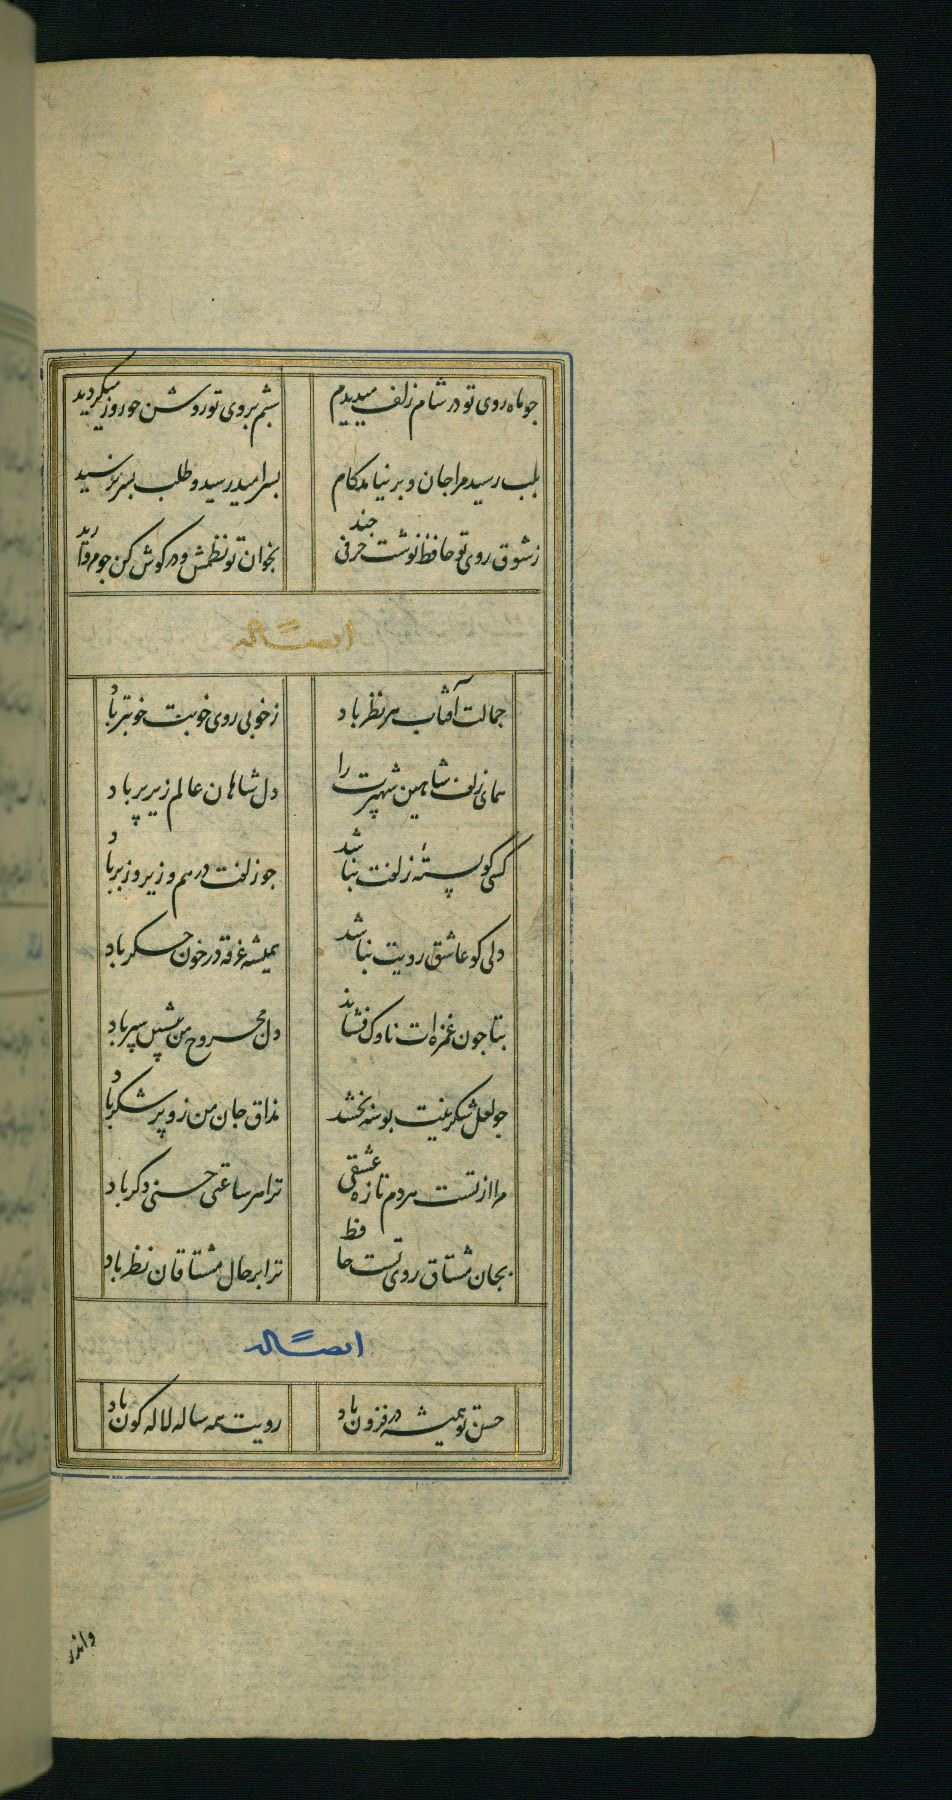 جو ماه روی تو در شام زلف میدیدم شبم بروی تو روشن جو روز میکردید
بلب رسید مرا جان و برنیامد کام بسر امید رسید و طلب بسر نرسید
ز شوق روی تو حافظ نوشت حرفی جند بخوان تو نظمش و در کوش کن جو مروارید
ایضاً له
جمالت آفتاب هر نظر باد ز خوبی روی خوبت خوبتر باد
همای زلف شاهین شهپرت را دل شاهان عالم زیر پر باد
کسی کو بستهٔ زلفت نباشد جو زلفت درهم و زیر و زبر باد
دلی کو عاشق رویت نباشد همیشه غرقه در خون جکر باد
بتا جون غمزه ات ناوک فشاند دل مجروح من پیشش سپر باد
جو لعل شکرینت بوسه بخشد مذاق جان من زو پر شکر باد
مرا از تست هر دم تازه عشقی ترا هر ساعتی حسنی دکر باد
بجان مشتاق روی تست حافظ ترا بر حال مشتاقان نظر باد
ایضاً له
حسن تو همیشه در فزون باد رویت همه ساله لاله کون باد
واندر